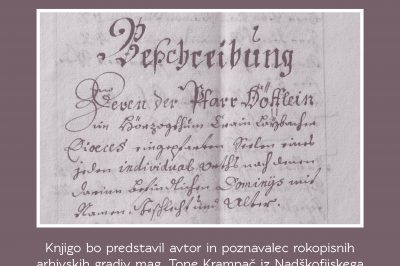 Beschreibung
Deren der Pfarr Höfflein
im Hörzogthum Crain Laybacher
Dioeces eingepfarten Seelen eines
jeden individual Orths nach denen
darinn befindlichen Dominijs mit
Namen, Geschlecht und Alter.
Knjigo bo predstavil avtor in poznavalec rokopisnih
arhivskih gradiv mag. Tone Krampač iz Nadškofijskega